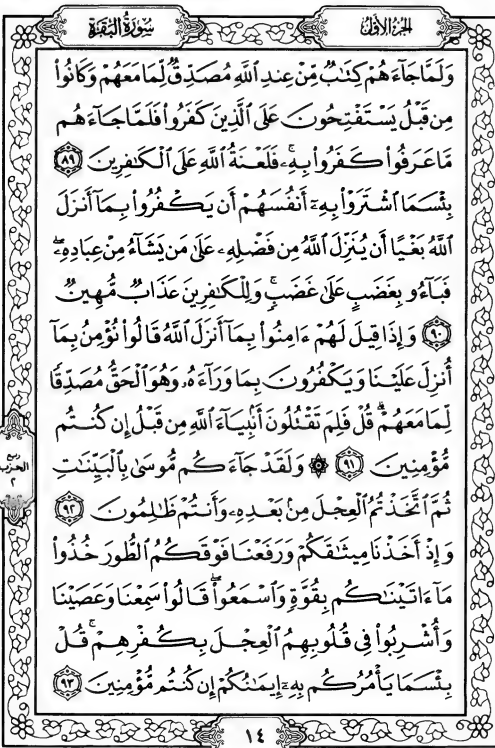 سورة البقرة
الجزء الأول
وَلَمَّا جَآءَهُمْ كِتَٰبٌ مِّنْ عِندِ ٱللَّهِ مُصَدِّقٌ لِّمَا مَعَهُمْ وَكَانُوا۟
مِن قَبْلُ يَسْتَفْتِحُونَ عَلَى ٱلَّذِينَ كَفَرُوا۟ فَلَمَّا جَآءَهُم
مَّا عَرَفُوا۟ كَفَرُوا۟ بِهِۦ ۚ فَلَعْنَةُ ٱللَّهِ عَلَى ٱلْكَٰفِرِينَ ٨٩
بِئْسَمَا ٱشْتَرَوْا۟ بِهِۦٓ أَنفُسَهُمْ أَن يَكْفُرُوا۟ بِمَآ أَنزَلَ
ٱللَّهُ بَغْيًا أَن يُنَزِّلَ ٱللَّهُ مِن فَضْلِهِۦ عَلَىٰ مَن يَشَآءُ مِنْ عِبَادِهِۦ ۖ
فَبَآءُو بِغَضَبٍ عَلَىٰ غَضَبٍ ۚ وَلِلْكَٰفِرِينَ عَذَابٌ مُّهِينٌ
٩٠ وَإِذَا قِيلَ لَهُمْ ءَامِنُوا۟ بِمَآ أَنزَلَ ٱللَّهُ قَالُوا۟ نُؤْمِنُ بِمَآ
أُنزِلَ عَلَيْنَا وَيَكْفُرُونَ بِمَا وَرَآءَهُۥ وَهُوَ ٱلْحَقُّ مُصَدِّقًا
لِّمَا مَعَهُمْ ۗ قُلْ فَلِمَ تَقْتُلُونَ أَنۢبِيَآءَ ٱللَّهِ مِن قَبْلُ إِن كُنتُم
مُّؤْمِنِينَ ٩١ ۞ وَلَقَدْ جَآءَكُم مُّوسَىٰ بِٱلْبَيِّنَٰتِ
ثُمَّ ٱتَّخَذْتُمُ ٱلْعِجْلَ مِنۢ بَعْدِهِۦ وَأَنتُمْ ظَٰلِمُونَ ٩٢
وَإِذْ أَخَذْنَا مِيثَٰقَكُمْ وَرَفَعْنَا فَوْقَكُمُ ٱلطُّورَ خُذُوا۟
مَآ ءَاتَيْنَٰكُم بِقُوَّةٍ وَٱسْمَعُوا۟ ۖ قَالُوا۟ سَمِعْنَا وَعَصَيْنَا
وَأُشْرِبُوا۟ فِى قُلُوبِهِمُ ٱلْعِجْلَ بِكُفْرِهِمْ ۚ قُلْ
بِئْسَمَا يَأْمُرُكُم بِهِۦٓ إِيمَٰنُكُمْ إِن كُنتُم مُّؤْمِنِينَ ٩٣
ربع
الحزب
٢
١٤